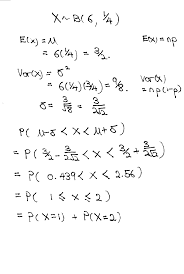 X ~ B(6, 1/4)
E(x) = μ
E(x) = np
= 6(1/4) = 3/2.
Var(x) = σ²
= 6(1/4)(3/4) = 9/8.
Var(x) = np(1-p)
σ = 3/√8 = 3/2√2
P( μ-σ < X < μ+σ )
= P( 3/2 - 3/2√2 < X < 3/2 + 3/2√2 )
= P( 0.439 < X < 2.56 )
= P( 1 ≤ X ≤ 2 )
= P(X=1) + P(X=2)